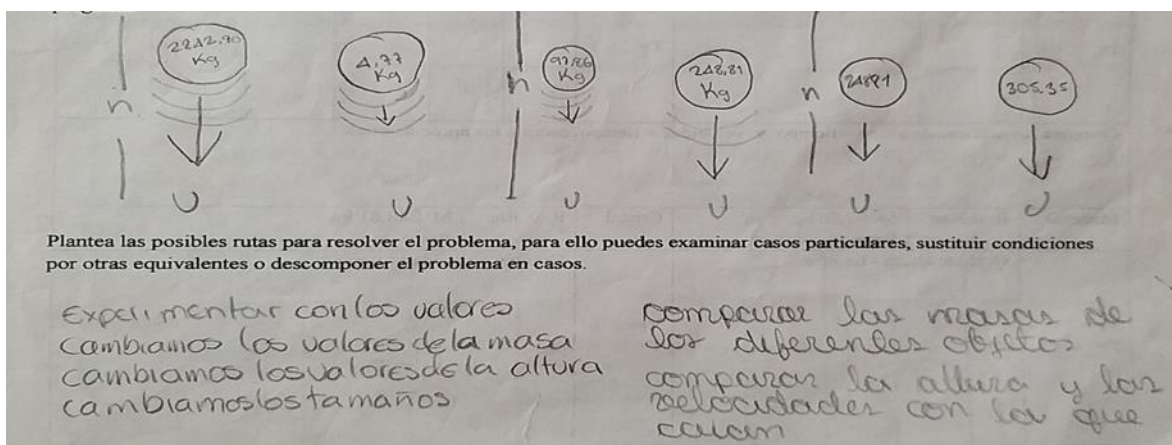 2242.90 Kg
4.77 Kg
97.86 Kg
248.81 Kg
24881
305.35
h
h
h
U
U
U
U
U
U
Plantea las posibles rutas para resolver el problema, para ello puedes examinar casos particulares, sustituir condiciones
por otras equivalentes o descomponer el problema en casos.
Experimentar con los valores
cambiamos los valores de la masa
cambiamos los valores de la altura
cambiamos los tamaños
comparar las masas de
los diferentes objetos
comparar la altura y las
velocidades con la que
caian